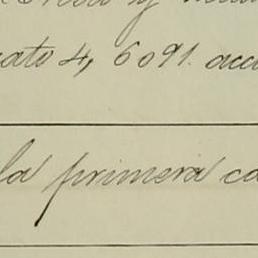 y
ato 4, 6091. acc
la primera ca